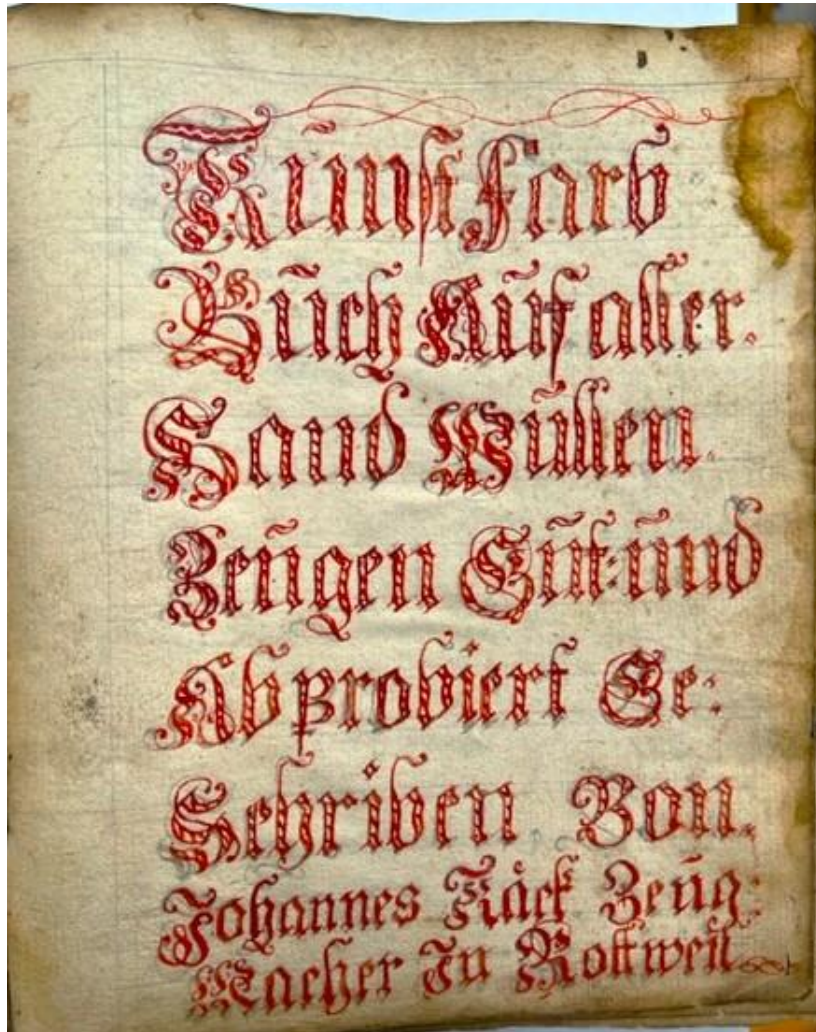 Kunst Farb
Buch Auf aller.
Hand Wullen.
Zeugen Gut: und
Abprobiert Ge:
Schriben Von.
Johannes Zeug:
Macher In Rottweil